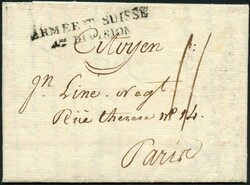 ARMÉE Fse SUISSE
4e DIVISION
Citoyen
Jn. Line. Negt
Rüe therese no. 14.
Paris